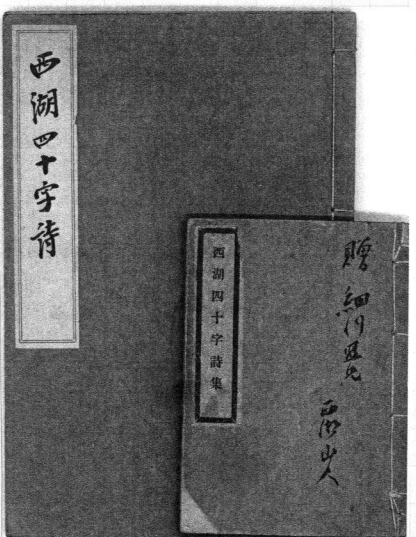 西湖四十字詩
西湖四十字詩集
贈 細川兄
西湖山人